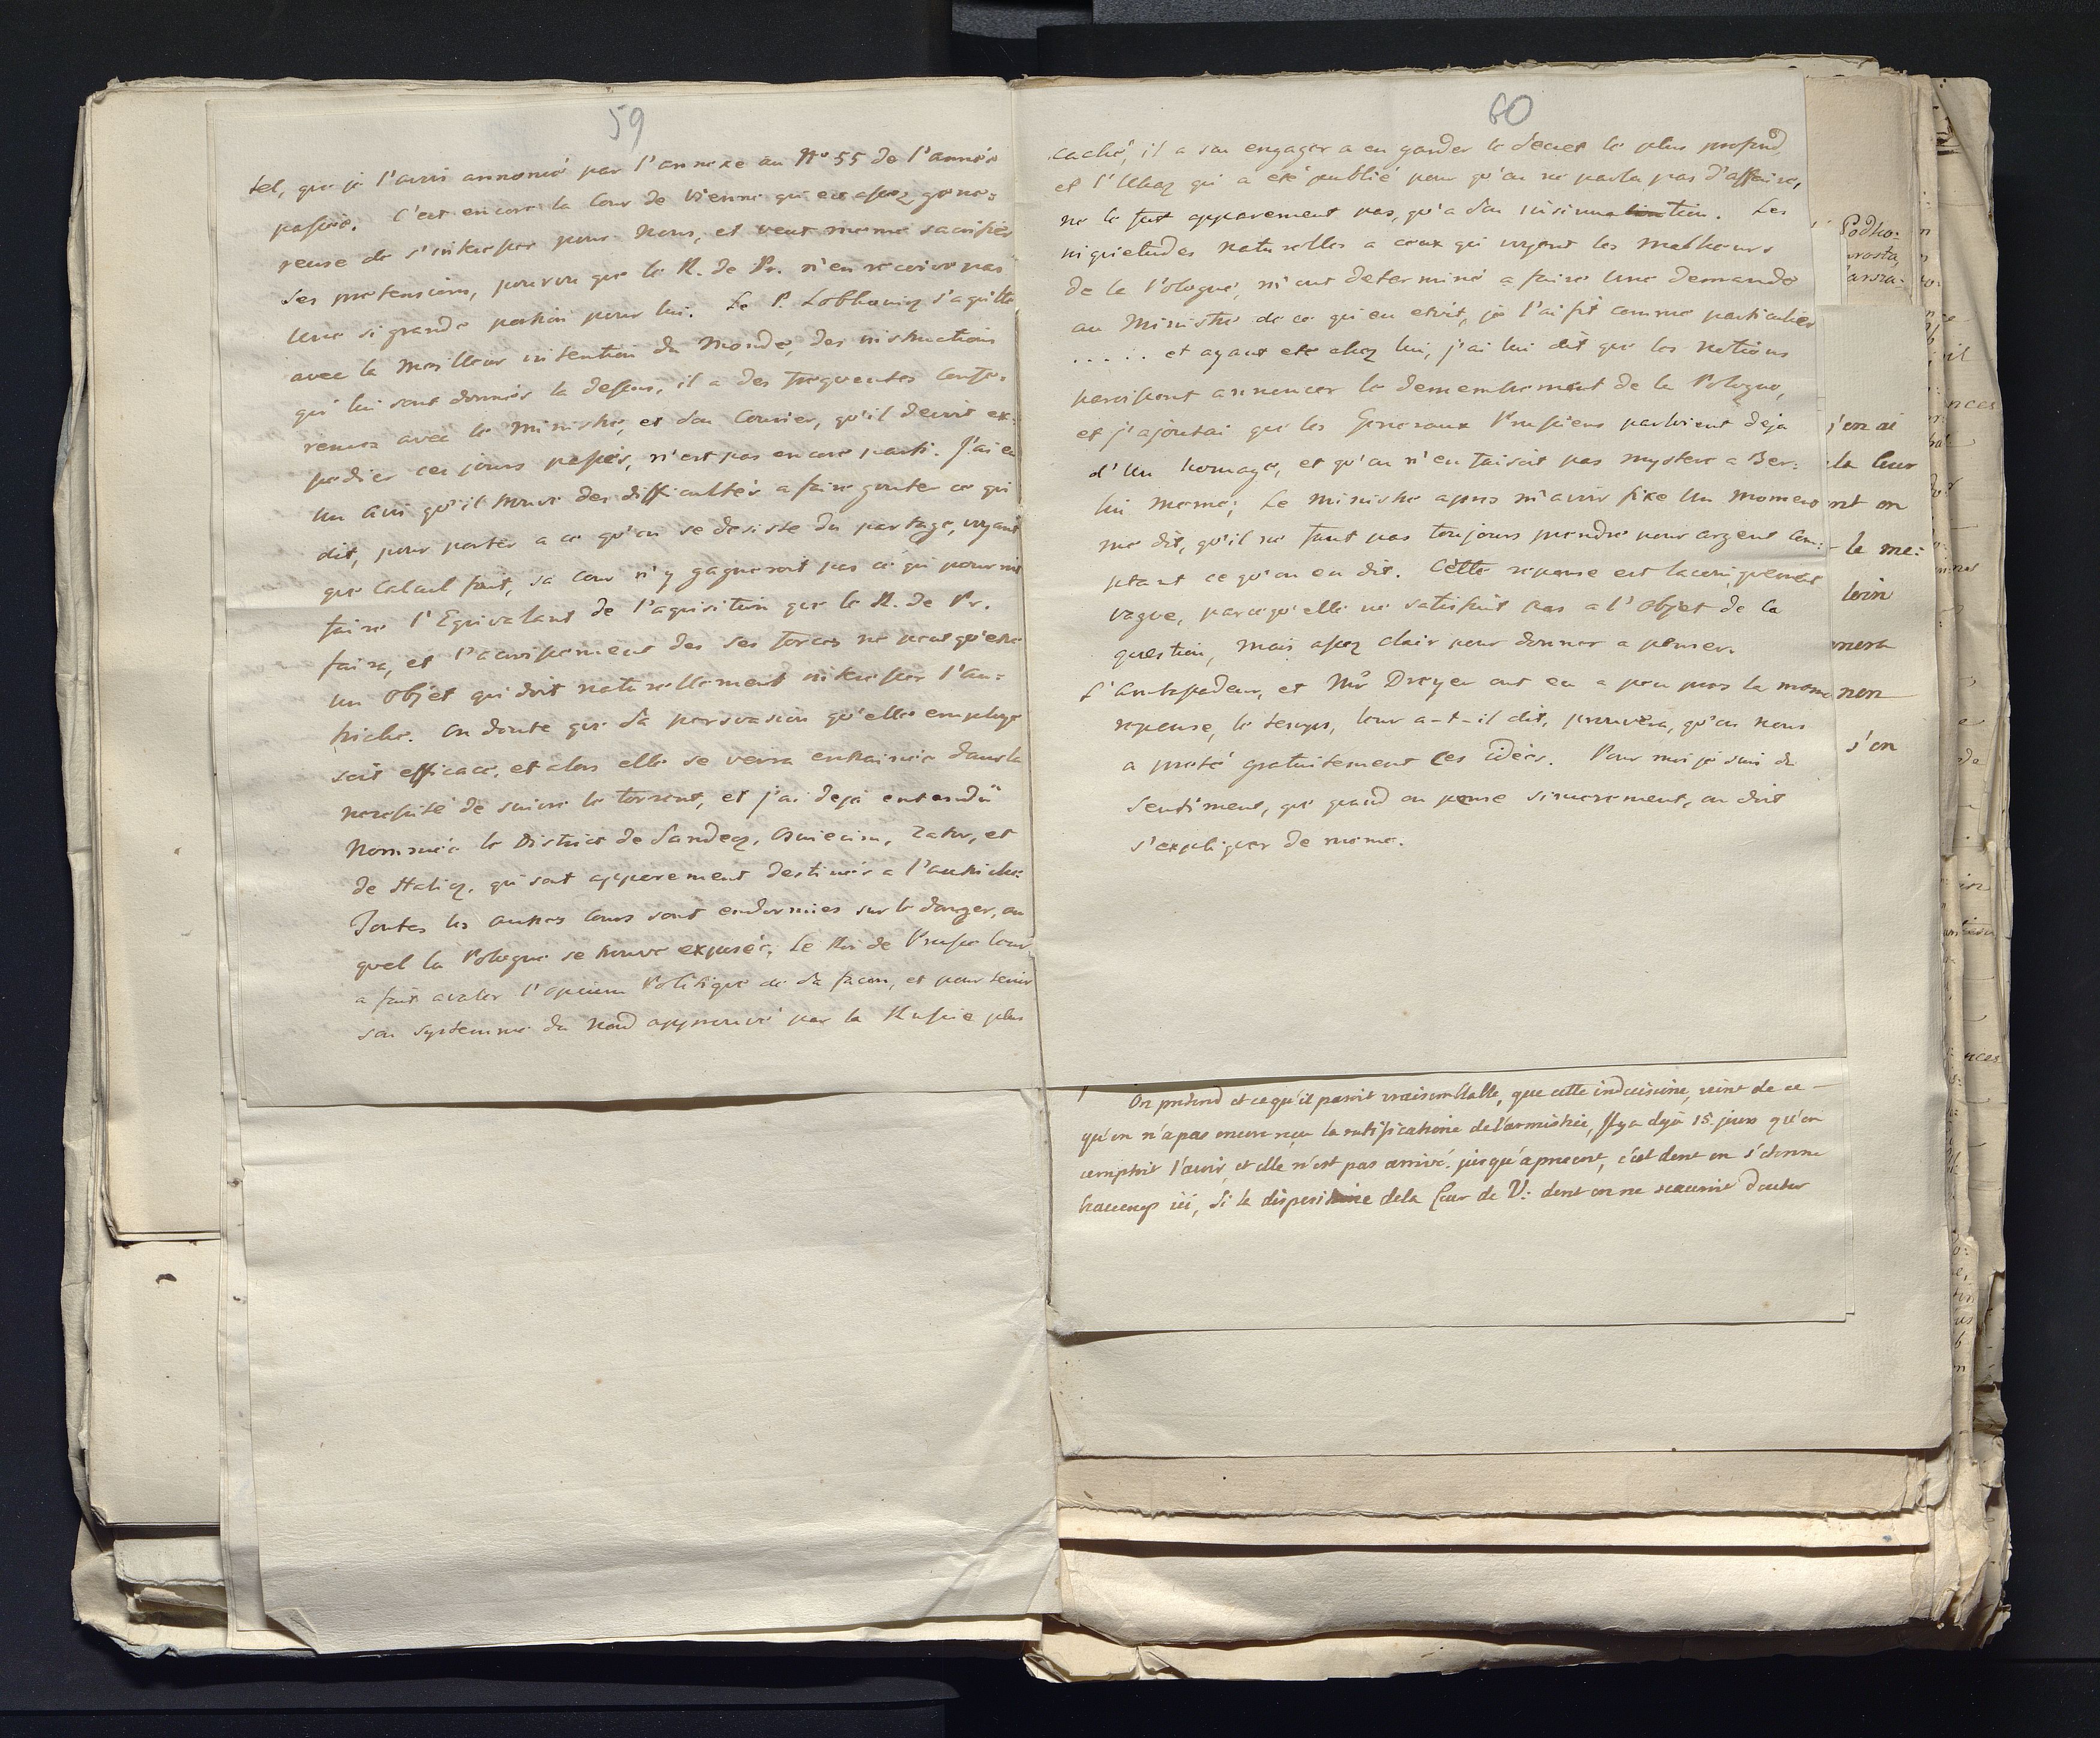 59
tel, que je l'avois annoncé par l'annexe au N° 55 de l'année
passée. C'est encore la Cour de Vienne qui est assez gene-
reuse de s'interesser pour nous, et veut meme sacrifier
ses pretensions, pourvu que le R. de Pr. n'en recoive pas
une si grande portion pour lui. Le P. Lobkowicz s'aquitte
avec la meilleur intention du Monde, des instructions
qui lui sont donnés la dessus, il a des frequentes Confe-
rences avec le Ministre, et son Courier, qu'il devoit ex-
pedier ces jours passés, n'est pas encore parti. J'ai eu
un avis qu'il trouve des difficultés a faire gouter ce qu'i
dit, pour porter a ce qu'on se desiste du partage, voyant
que Calcul fait, sa Cour n'y gagneroit pas ce qui pourroit
faire l'Equivalant de l'aquisition que le R. de Pr.
faira, et l'accroissement des ses forces ne peut qu'etre
un objet qui doit naturellement interesser l'Au-
triche. On doute que sa persvasion qu'elle employe
soit efficace, et alors elle se verra entrainée dans la
necessité de suivre le torrent, et j'ai deja entendû
Nommée le District de Sandecz, Oswiecim, Zator, et
de Halicz, qui sont apparement destinés a l'autriche.
Toutes les autres Cours sont endormies sur le danger, au
quel la Pologne se trouve exposée. Le Roi de Prusse leur
a fait avaler l'opium Politique de sa facon, et pour tenir
son systemme du Nord approuvé par la Russie plus
60
caché, il a su engager a en garder le secret le plus profond,
et l'Ukaz qui a été publié pour qu'on ne parla pas d'affaires,
ne le fut apparement pas, qu'a son insinuation. Les
niquietudes naturelles a ceux qui voyent les malheurs
de la Pologne, m'ont determiné a faire une demande
au Ministre de ce qui en etoit, je l'ai fit comme particulier
..... et ayant eté chez lui, j'ai lui dit que les notions
paroissent annoncer le demembrement de la Pologne,
et j'ajoutai que les Generaux Prussiens parloient deja
d'un homage, et qu'on n'en faisoit pas mystere a Ber-
lin meme; Le Ministre apres m'avoir fixe un moment
me dit, qu'il ne faut pas toujours prendre pour argent Com-
ptant ce qu'on en dit. Cette reponse est laconiquement
vague, parcequ'elle ne satisfait pas a l'objet de la
question, mais assez clair pour donner a penser.
L'Ambassadeur, et Mr Dreyer ont eu a peu pres la meme
reponse, le temps, leur a-t-il dit, prouvera, qu'on nous
a preté gratuitement ces idées. Pour moi je suis du
sentiment, que quand on pense sincerement, on doit
s'expliquer de meme.
On pretend et ce qu'il paroit vraisemblable, que cette indecisione, vient de ce
qu'on n'a pas encore reçu la ratificatione de l'armistice, Il y a dejà 15. jours qu'on
comptoit l'avoir, et elle n'est pas arrivé jusqu'apresent, c'est dont on s'etonne
beaucoup ici, Si la disposi de la Cour de V: dont on ne scauroit douter
Podho-
j'en ai
la leur
nt on
- le me-
loin
non
s'on